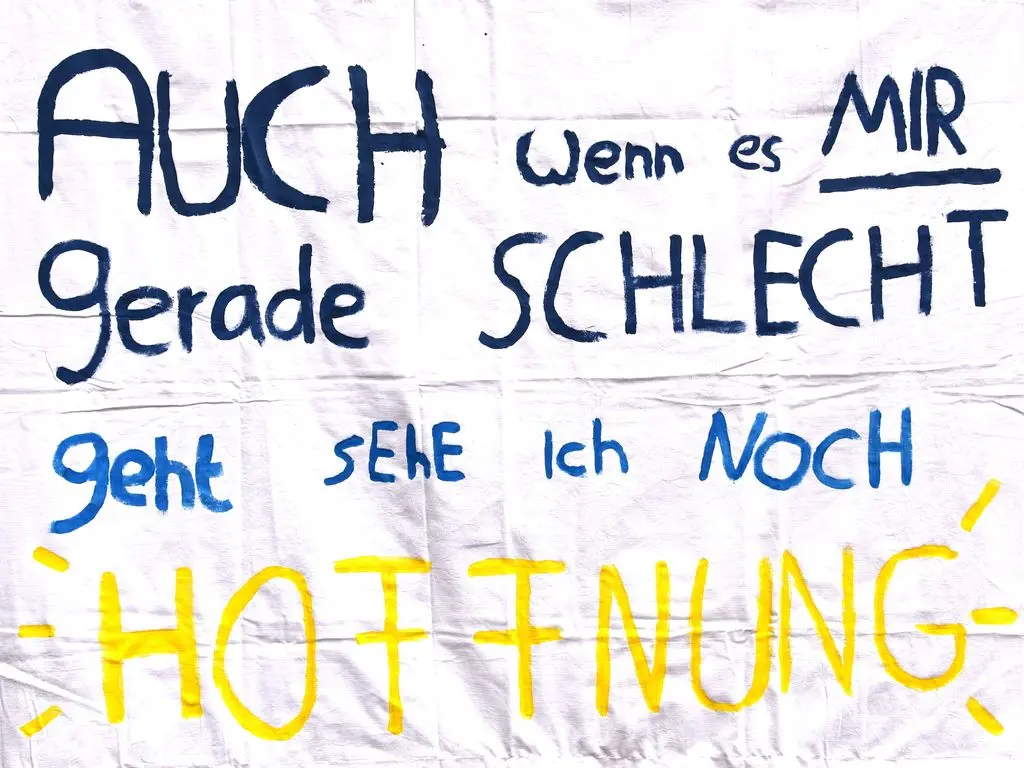 AUCH wenn es MIR
gerade SCHLECHT
geht SEhE Ich NOCH
HOFFNUNG